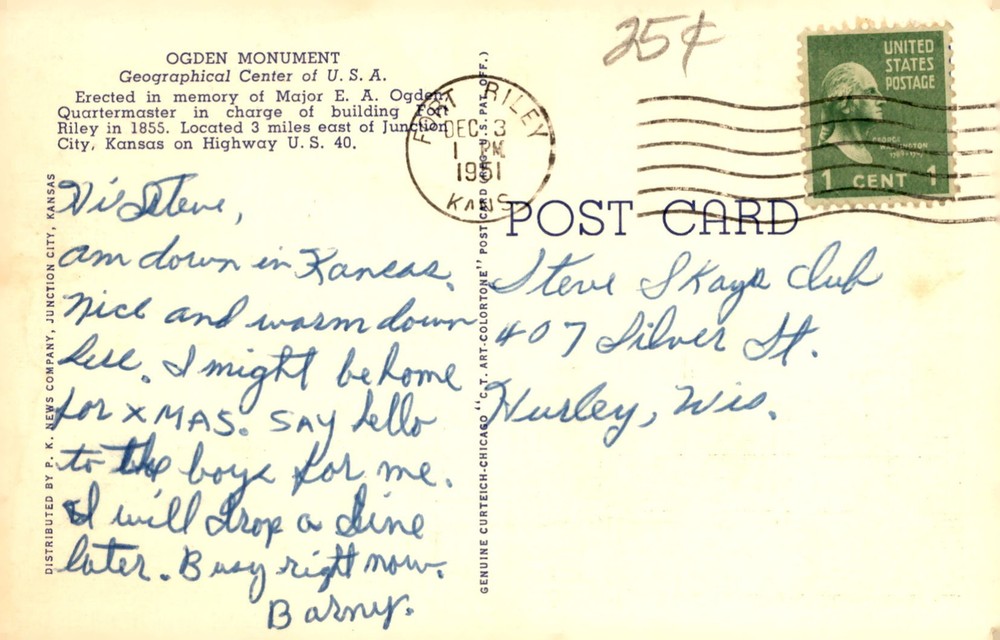 OGDEN MONUMENT
Geographical Center of U. S. A.
Erected in memory of Major E. A. Ogden,
Quartermaster in charge of building Fort
Riley in 1855. Located 3 miles east of Junction
City, Kansas on Highway U. S. 40.
Hi Steve,
am down in Kansas.
Nice and warm down
here. I might be home
for XMAS. SAY hello
to the boys for me.
I will drop a line
later. Busy right now.
Barny.
DISTRIBUTED BY P. K. NEWS COMPANY, JUNCTION CITY, KANSAS
GENUINE CURTEICH-CHICAGO "C. T. ART-COLORTONE" POST CARD (REG. U.S. PAT. OFF.)
25¢
FORT RILEY
DEC 3
1 PM
1951
KANS
UNITED
STATES
POSTAGE
GEORGE
WASHINGTON
1 CENT 1
POST CARD
Steve Skaya Club
407 Silver St.
Hurley, Wis.